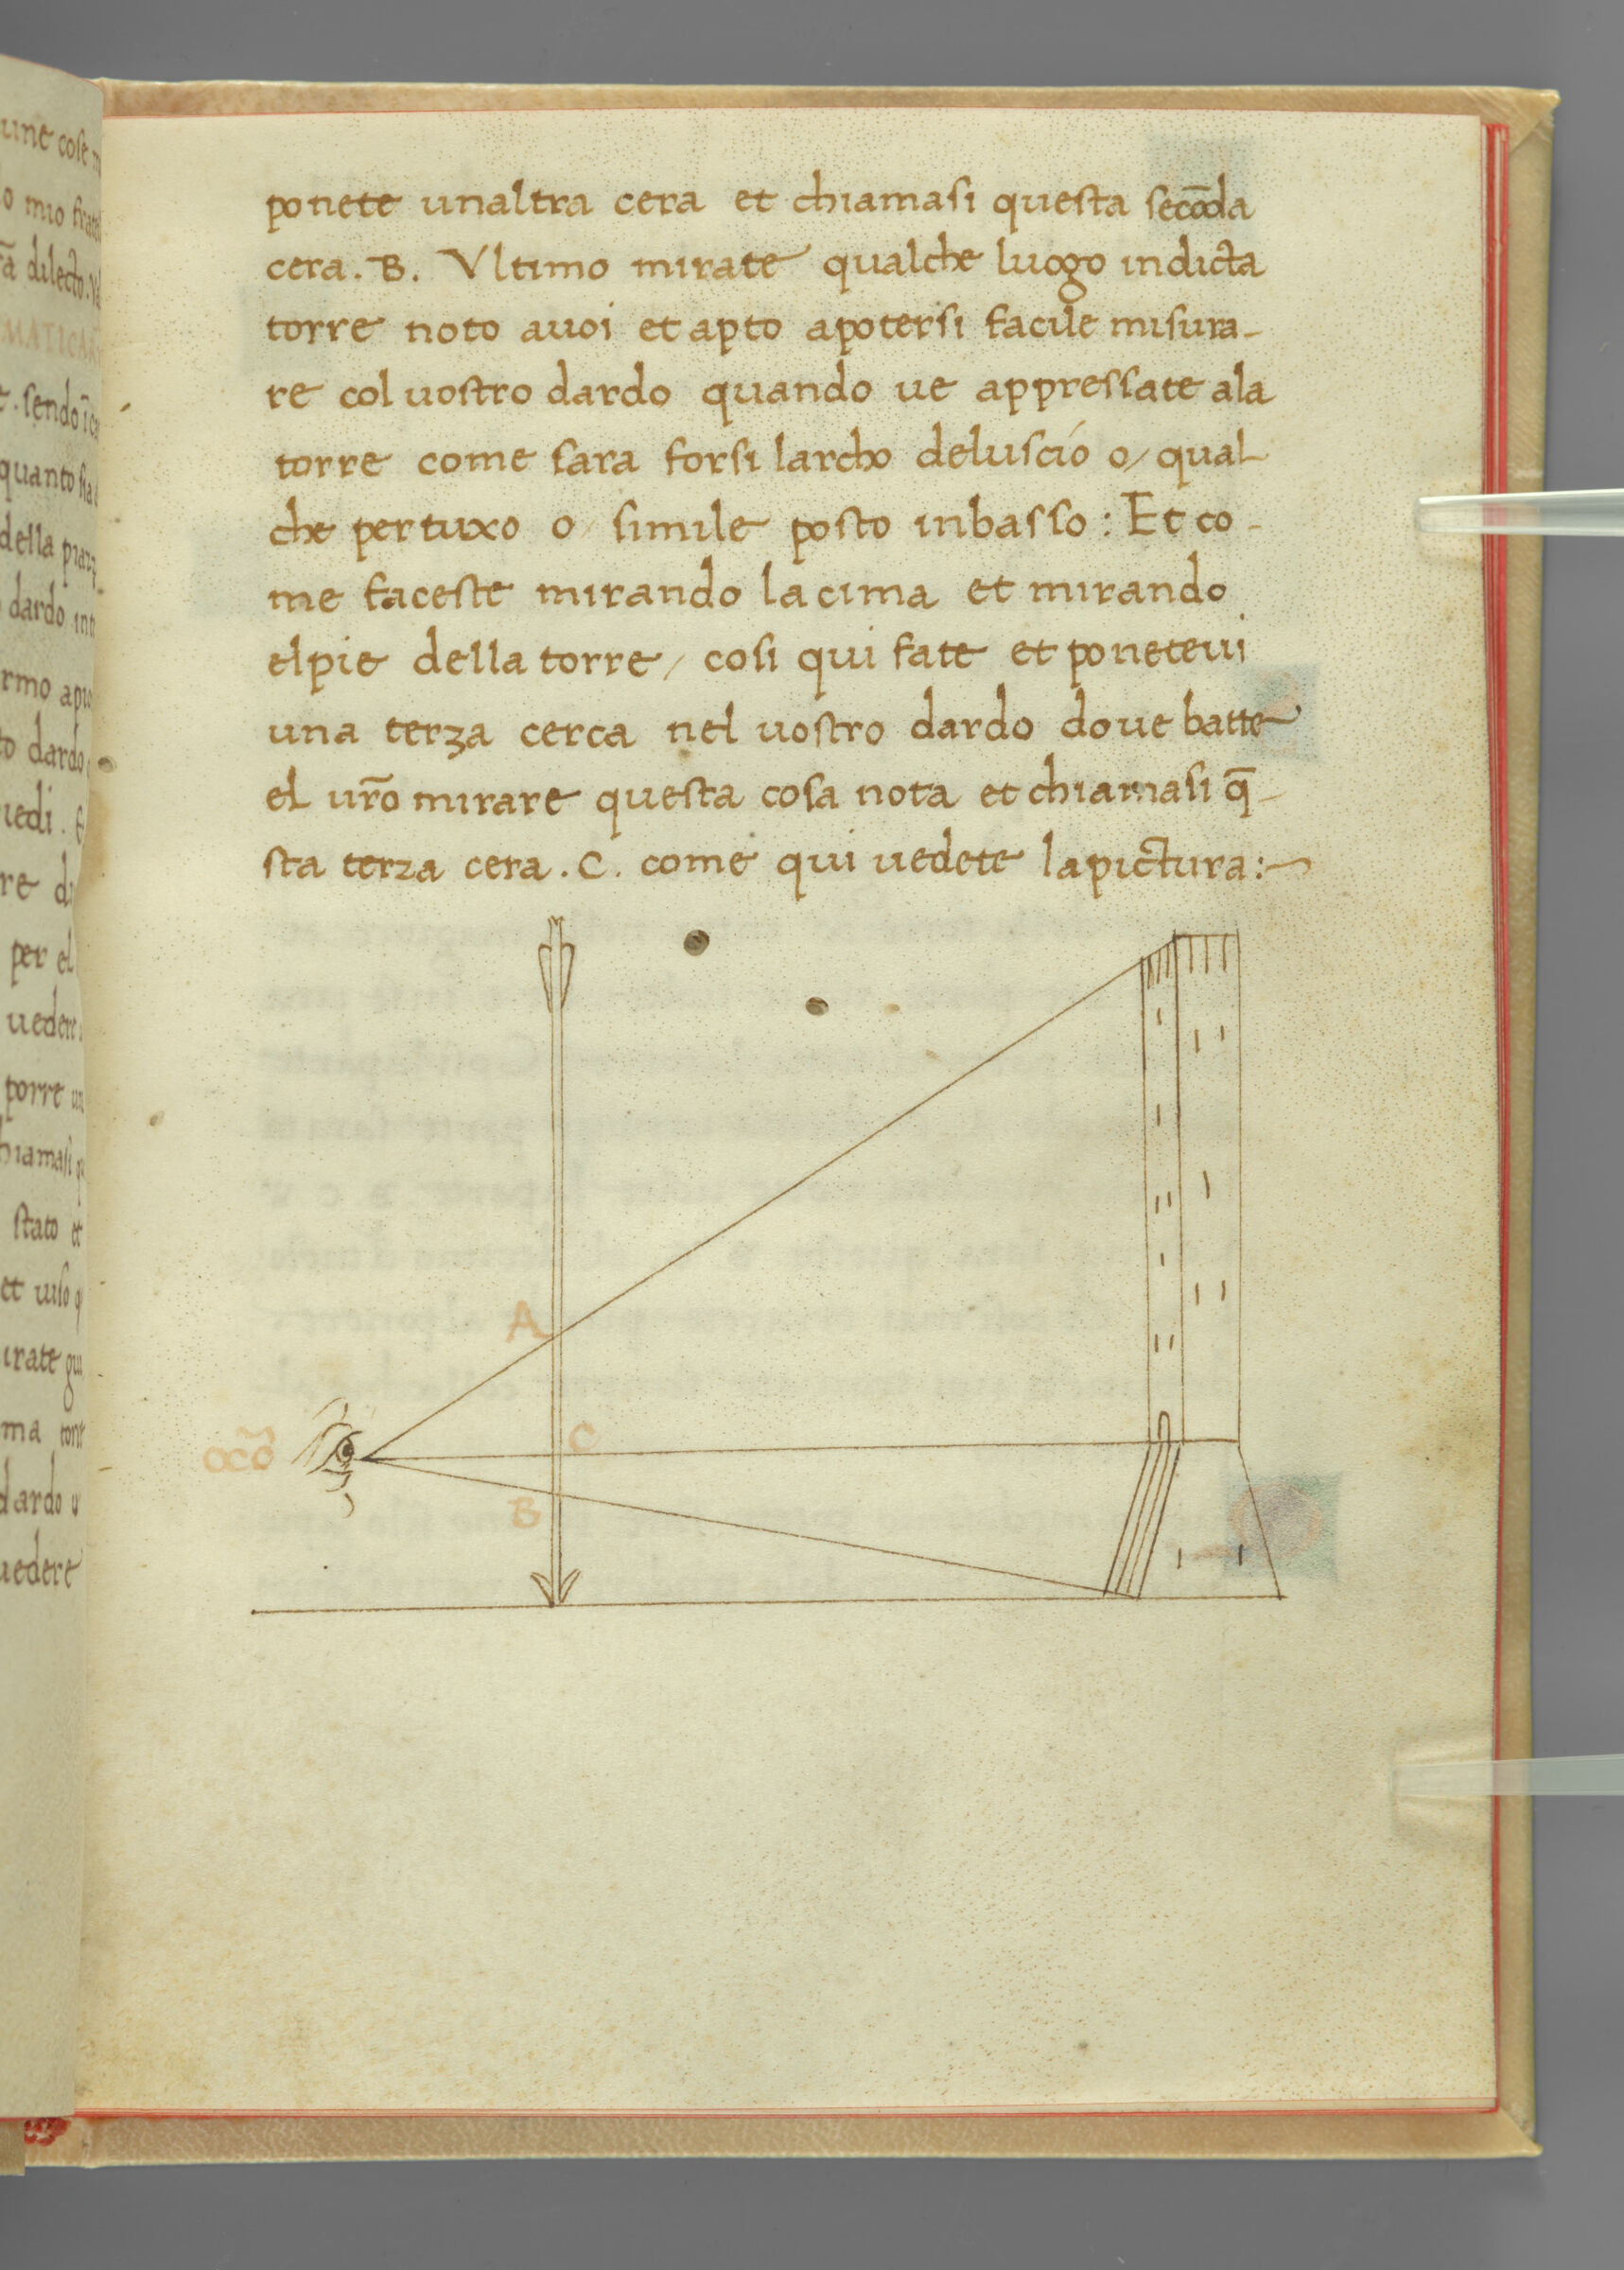 une cose
o mio frat
dilecto.
MATICA
sendo
quanto sia
della piaz
dardo in
rmo apie
to dardo
uedi. E
re di
per el
uedere
porre un
hiamasi
stato et
et uiso q
irate
ma torr
dardo u
uedere
ponete unaltra cera et chiamasi questa secōda
cera. B. Vltimo mirate qualche luogo indicta
torre noto auoi et apto apotersi facile misura-
re col uostro dardo quando ue appressate ala
torre come sara forsi larcho deluscio o/ qual
che pertuxo o/ simile posto inbasso: Et co-
me faceste mirando la cima et mirando
elpie della torre/ cosi qui fate et poneteui
una terza cerca nel uostro dardo doue batte
el ur̄o mirare questa cosa nota et chiamasi q̄-
sta terza cera. C. come qui uedete la pictura:~
A
C
ocō
B